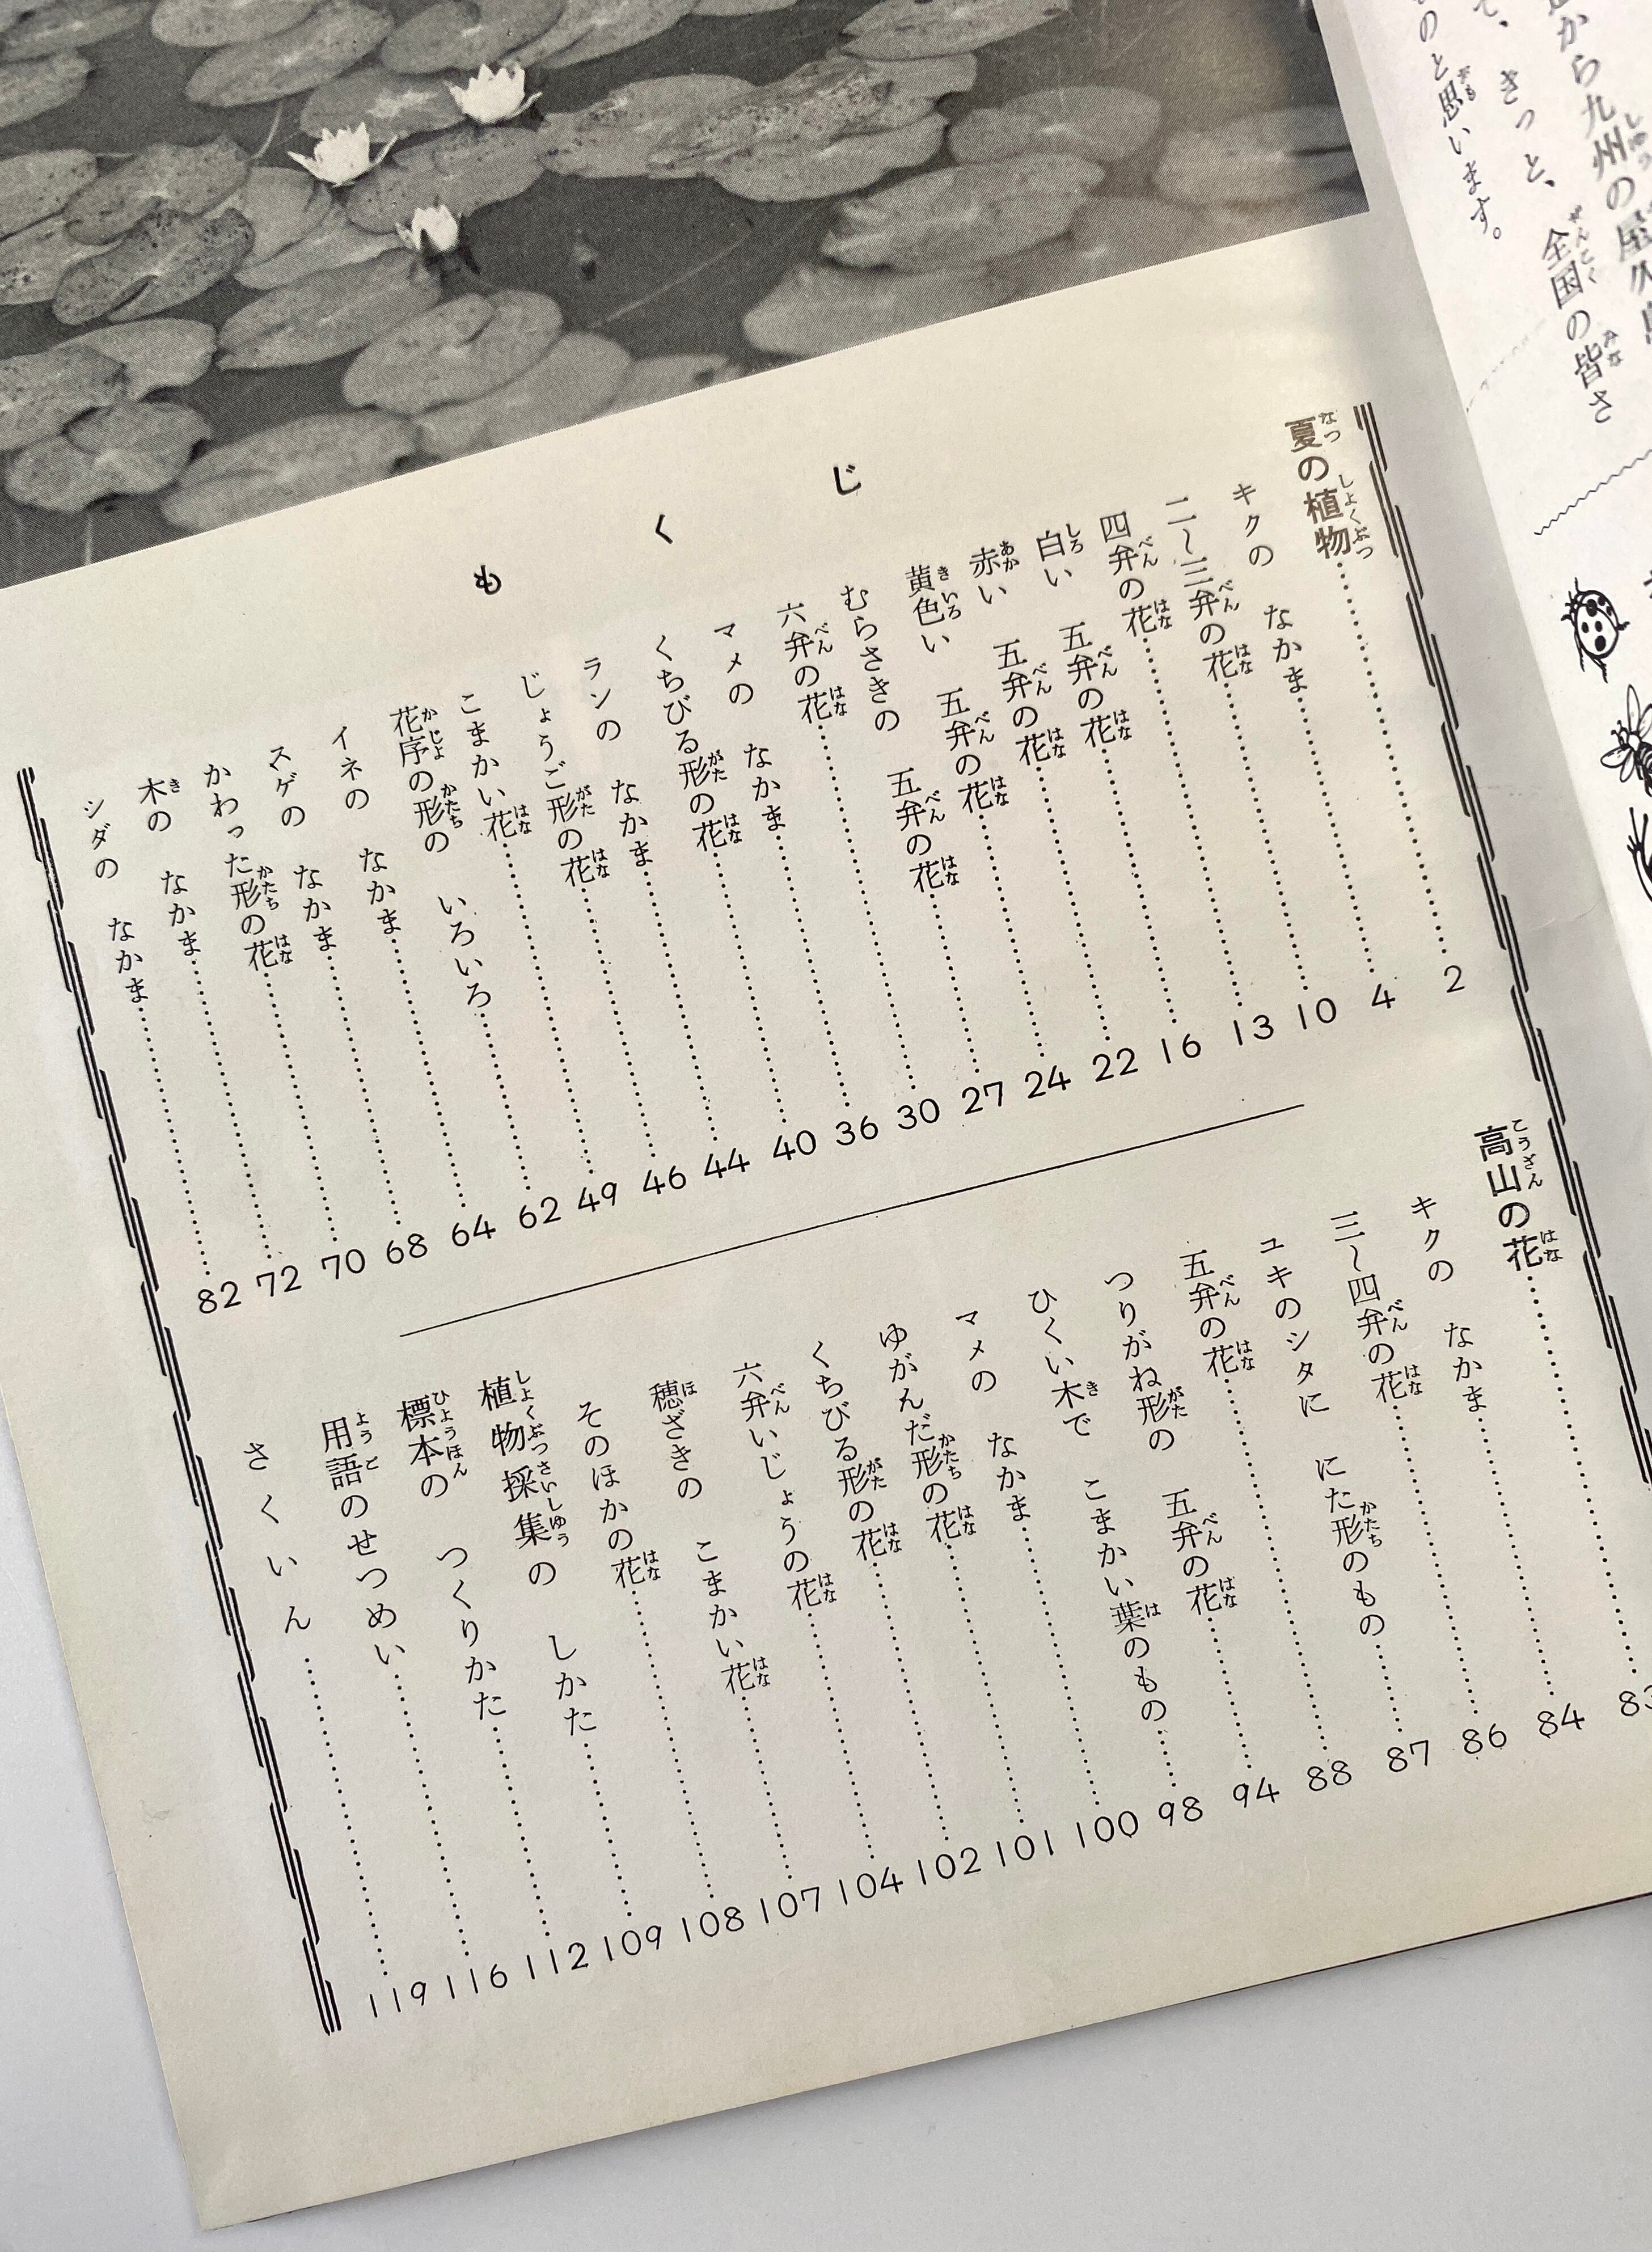 から九州の屋久島
て、きっと、全国の皆さ
のと思います。
もくじ
夏の植物……2
キクの なかま……4
二〜三弁の花……10
四弁の花……13
白い 五弁の花……16
赤い 五弁の花……22
黄色い 五弁の花……24
むらさきの 五弁の花……27
六弁の花……30
マメの なかま……36
くちびる形の花……40
ランの なかま……44
じょうご形の花……46
こまかい花……49
花序の形の いろいろ……62
イネの なかま……64
スゲの なかま……68
かわった形の花……70
木の なかま……72
シダの なかま……82
高山の花……83
キクの なかま……84
三〜四弁の花……86
ユキのシタに にた形のもの……87
五弁の花……88
つりがね形の 五弁の花……94
ひくい木で こまかい葉のもの……98
マメの なかま……100
ゆがんだ形の花……101
くちびる形の花……102
六弁いじょうの花……104
穂ざきの こまかい花……107
そのほかの花……108
植物採集の しかた……109
標本の つくりかた……112
用語のせつめい……116
さくいん……119